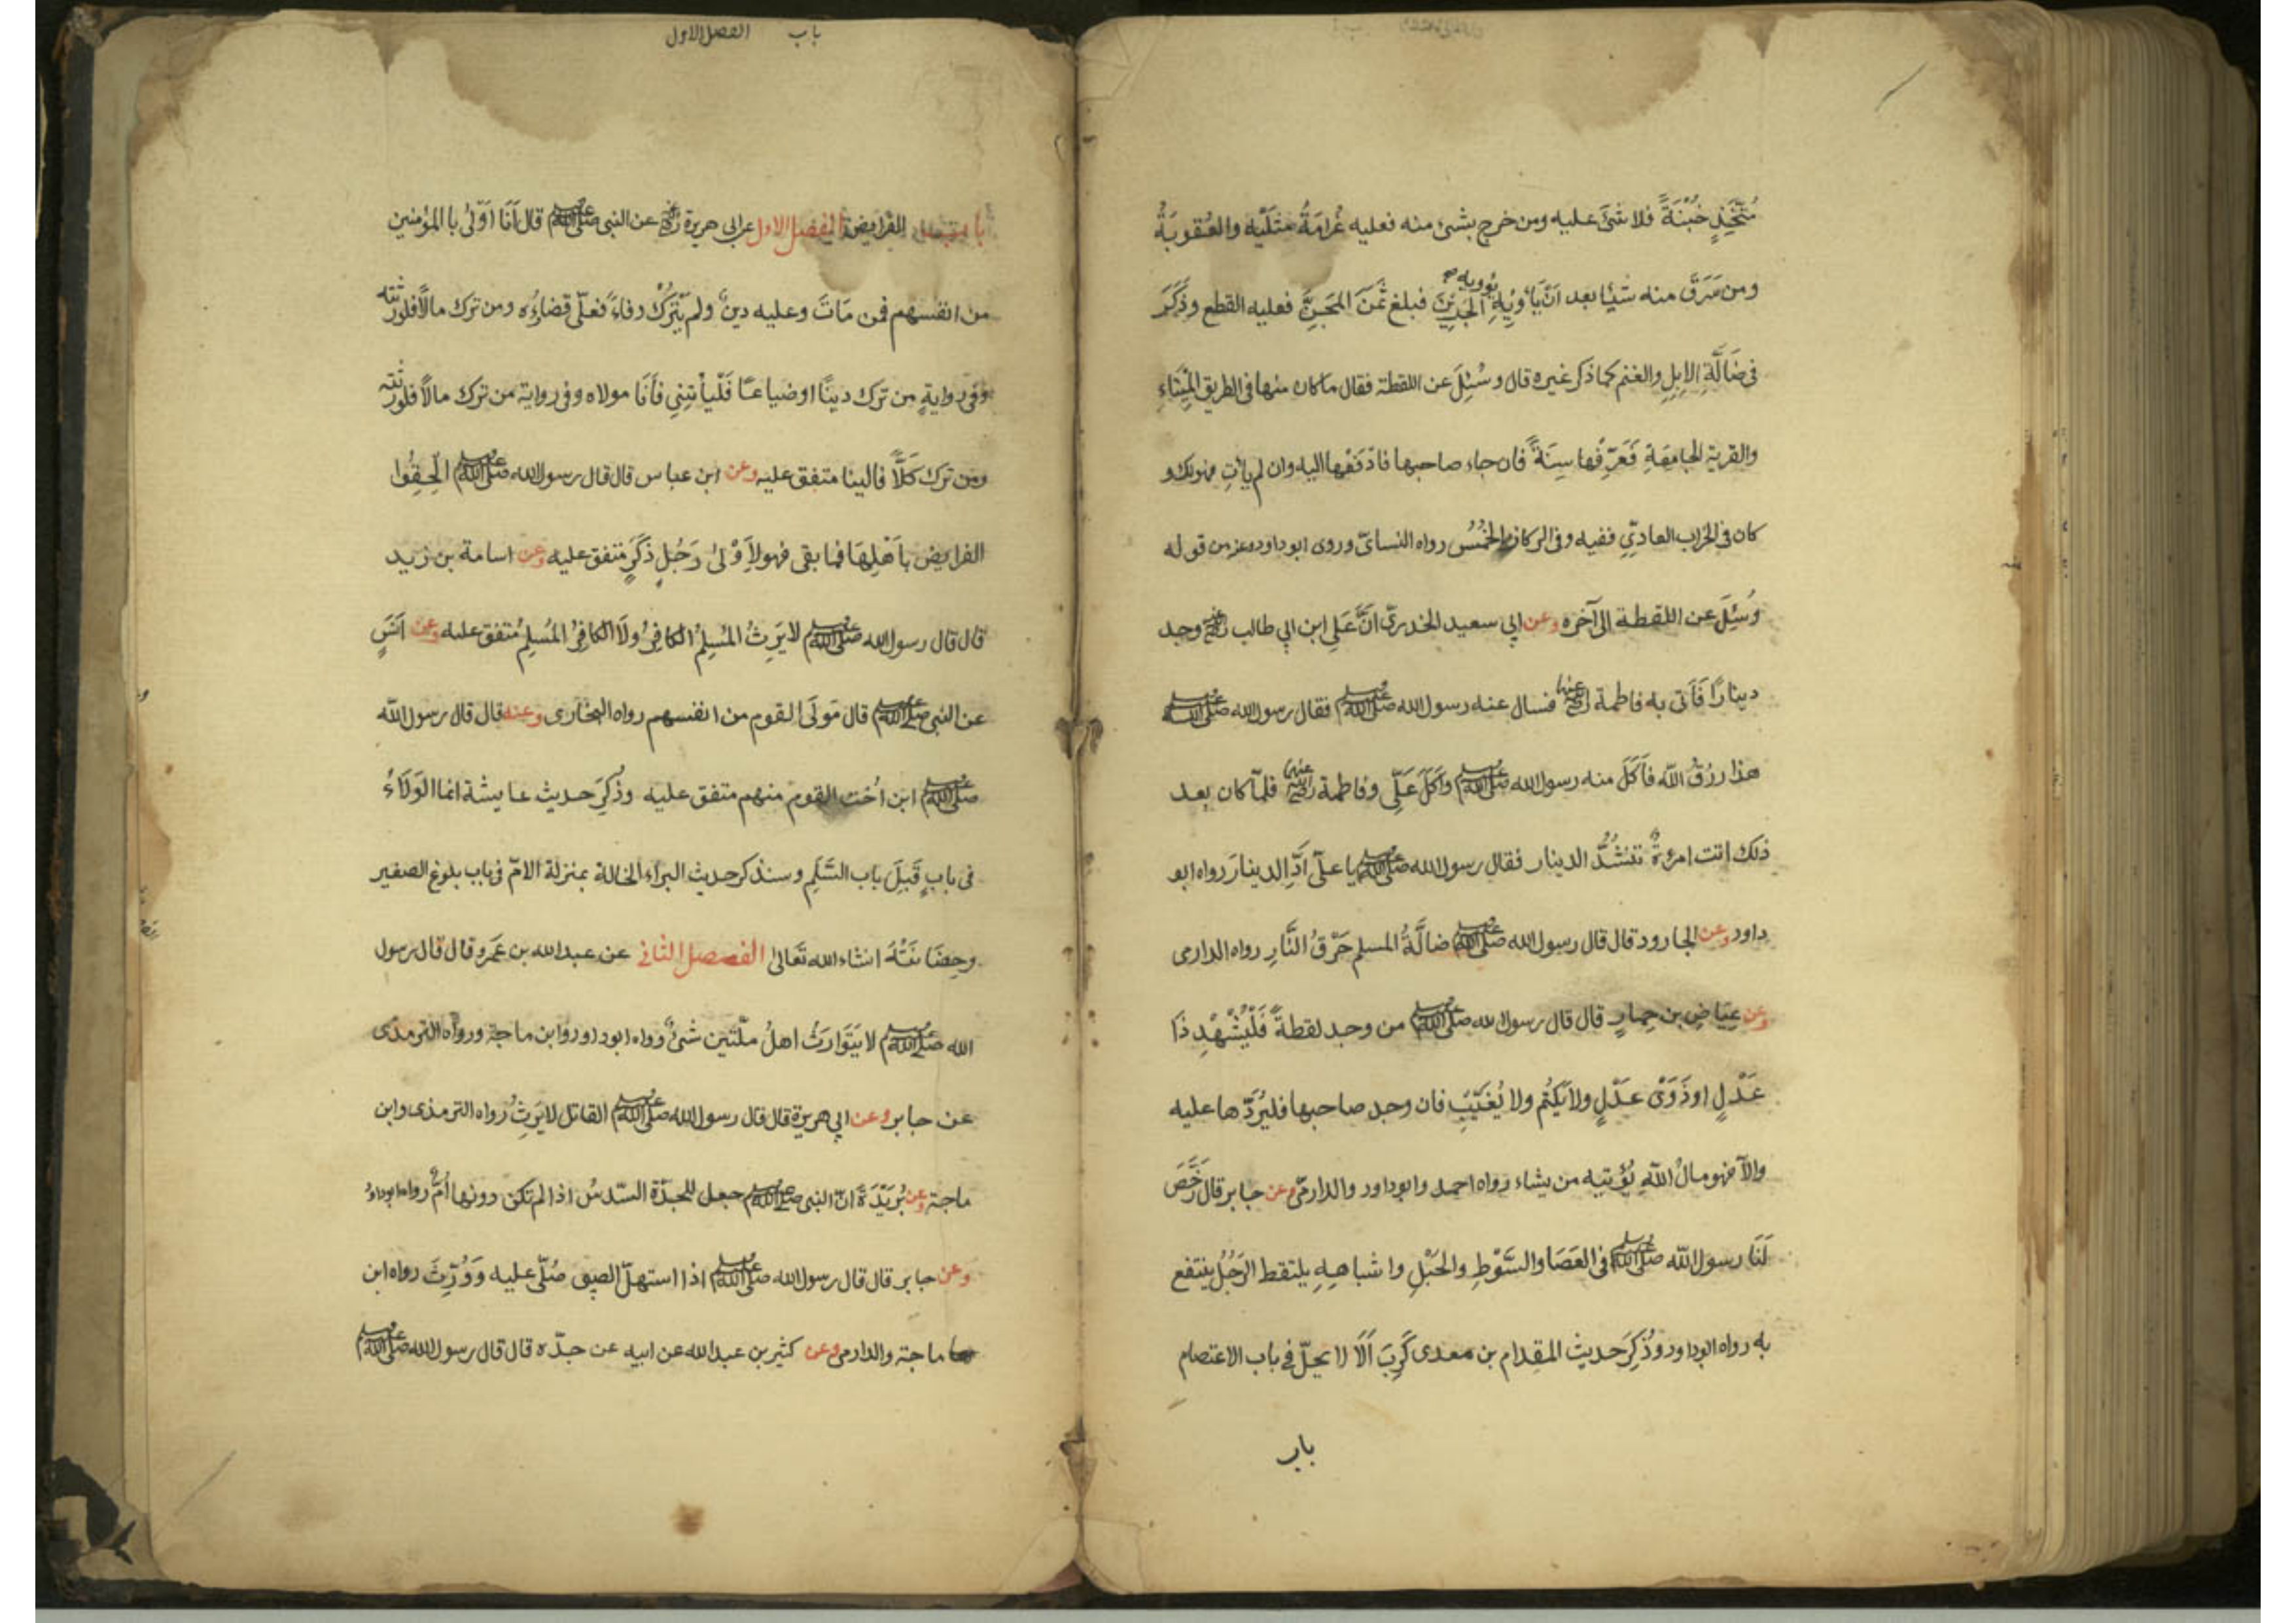 مُتَّخِذٍ خُبْنَةً فلا شئَ عليه ومن خرج بشئ منه فعليه غُرامَةُ مثلَيْه والعُقوبَةُ
ومن سَرَقَ منه شيئا بعد ان يأويه الجَرِينَ فبلغ ثمنَ المِجَنِّ فعليه القطع وذَكَرَ
يوويه
فى ضَالَّةِ الابِلِ والغنم كما ذكر غيره قال وسُئِلَ عن اللقطة فقال ما كان منها فى الطريق المِيْتَاءِ
والقرية الجامِعَةِ فَعَرِّفْها سَنَةً فان جاء صاحبها فادْفَعْها اليه وان لم يأتِ فهو لك و
كان فى الخراب العادِيّ ففيه وفى الركاز الخُمُسُ رواه النسائىّ وروى ابوداود عنه من قوله
وسُئِلَ عن اللقطة الى آخره وعن ابى سعيد الخدرىّ انَّ عَلى ابن ابى طالب رضى الله عنه وجد
دينارًا فَاَتى به فاطمة رضى الله عنها فسال عنه رسول الله صلى الله عليه وسلم فقال رسول الله صلى الله عليه وسلم
هذا رزقُ الله فاَكَلَ منه رسول الله صلى الله عليه وسلم واَكَلَ عَلِّى وفاطمة رضى الله عنها فلمّا كان بعد
ذلك اتت امرءةٌ تنشُدُ الدينار فقال رسول الله صلى الله عليه وسلم يا علىّ اَدِّ الدينارَ رواه ابو
داود وعن الجارود قال قال رسول الله صلى الله عليه وسلم ضالَّةُ المسلم حَرَقُ النَّارِ رواه الدارمى
وعن عِيَاضِ بن حِمارٍ قال قال رسول الله صلى الله عليه وسلم من وجد لقطةً فَلْيُشْهِدْ ذَا
عَدْلٍ او ذَوَىْ عَدْلٍ ولا يَكْتُم ولا يُغَيِّبْ فان وجد صاحبها فليَرُدّها عليه
والّا فهو مالُ الله يُؤتيه من يشاء رواه احمد وابوداود والدارمىّ وعن جابر قال رَخَّصَ
لَنَا رسول الله صلى الله عليه وسلم فى العَصَا والسَّوْطِ والحَبْلِ واشباهِهِ يلتقط الرَجُلُ ينتفع
به رواه ابوداود وذُكِرَ حديث المقدام بن معدى كَرِبَ اَلَا لا يحلّ فى باب الاعتصام
باب
باب الفصل الاول
باب الفرايض الفصل الاول عن ابى هريرة رضى الله عنه عن النبى صلى الله عليه وسلم قال اَنَا اَوْلىٰ بالمؤمنين
من انفسهم فمن مَاتَ وعليه دينٌ ولم يَتْرُكْ وفاءً فعلىّ قضاؤُه ومن ترك مالًا فلورثته
وفى روايةٍ من ترك دينًا او ضياعًا فَلْياْتِنِى فاَنَا مولاه وفى رواية من ترك مالًا فلورثته
ومن ترك كَلًّا فالينا متفق عليه وعن ابن عباس قال قال رسول الله صلى الله عليه وسلم اَلْحِقُوا
الفرايض باَهْلِهَا فما بقى فهو لِاَوْلىٰ رَجُلٍ ذَكَرٍ متفق عليه وعن اسامة بن زيد
قال قال رسول الله صلى الله عليه وسلم لا يَرِثُ المُسلِمُ الكافِرَ ولَا الكافِرُ المُسلِمَ متفق عليه وعن اَنَسٍ
عن النبى صلى الله عليه وسلم قال مَولَى القوم من انفسهم رواه البخارى وعنه قال قال رسول الله
صلى الله عليه وسلم ابن اُخت القوم منهم متفق عليه وذُكِرَ حديث عايشة انما الوَلَاءُ
فى بابٍ قَبلَ باب السَّلَمِ وسنذكر حديث البراء الخالة بمنزلة الامّ فى باب بلوغ الصغير
وحِضَانَتُهُ انشاء الله تَعَالى الفصل الثانى عن عبد الله بن عَمرو قال قال رسول
الله صلى الله عليه وسلم لا يَتَوَارَثُ اهلُ ملّتين شتّىٰ رواه ابوداود وابن ماجة ورواه الترمذى
عن جابر وعن ابى هريرة قال قال رسول الله صلى الله عليه وسلم القاتل لا يَرِثُ رواه الترمذى وابن
ماجة وعن بُرَيْدَةَ انّ النبى صلى الله عليه وسلم جعل للجدّة السّدسُ اذا لم تكن دونها اُمٌّ رواه ابوداود
وعن جابر قال قال رسول الله صلى الله عليه وسلم اذا استهلّ الصبى صُلّى عليه وَوُرِّثَ رواه ابن
ماجة والدارمى وعن كثير بن عبد الله عن ابيه عن جدّه قال قال رسول الله صلى الله عليه وسلم